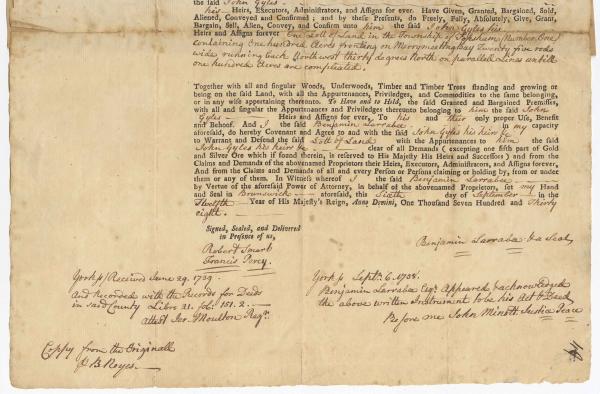 the said John Gyles
his Heirs, Executors, Administrators, and Assigns for ever. Have Given, Granted, Bargained, Sold,
Aliened, Conveyed and Confirmed; and by these Presents, do Freely, Fully, Absolutely, Give, Grant,
Bargain, Sell, Alien, Convey, and Confirm unto him the said John Gyles his
Heirs and Assigns forever One Lott of Land in the Township of Topsham, Number One
containing One hundred Acres fronting on Merrymeeting bay Twenty five rods
wide running back Northwest thirty degrees North on parallel Lines untill
one hundred Acres are compleated.
Together with all and singular Woods, Underwoods, Timber and Timber Trees standing and growing or
being on the said Land, with all the Appurtenances, Priviledges, and Commodities to the same belonging,
or in any wise appertaining thereunto. To Have and to Hold, the said Granted and Bargained Premisses,
with all and singular the Appurtenances and Priviledges thereunto belonging to him the said John
Gyles Heirs and Assigns for ever, To his and their only proper Use, Benefit
and Behoof. And I the said Benjamin Larraba in my capacity
aforesaid, do hereby Covenant and Agree to and with the said John Gyles his heirs &c
to Warrant and Defend the said Lott of Land with the Appurtenances to him the said
John Gyles his heirs &c clear of all Demands (excepting one fifth part of Gold
and Silver Ore which if found therein, is reserved to His Majesty His Heirs and Successors) and from the
Claims and Demands of the abovenamed Proprietors their Heirs, Executors, Administrators, and Assigns forever,
And from the Claims and Demands of all and every Person or Persons claiming or holding by, from or under
them or any of them. In Witness whereof I the said Benjamin Larraba
by Vertue of the aforesaid Power of Attorney, in behalf of the abovenamed Proprietors, set my Hand
and Seal in Brunswick aforesaid, this Sixth day of September in the
Twelfth Year of His Majesty's Reign, Anno Domini, One Thousand Seven Hundred and Thirty
eight.
Signed, Sealed, and Delivered
in Presence of us,
Robert Smart
Francis Percy
Benjamin Larraba & a Seal
York ss Received June 29. 1739.
And Recorded with the Records for Deeds
in said County Libro 21. fol. 151. 2
attest Jer. Moulton Regr.
York ss Septr. 6. 1738.
Benjamin Larraba Esqr. Appeared & acknowledged
the above written Instrument to be his Act & Deed
Before me John Minott Justice Peace
Coppy from the Originall
B Royes